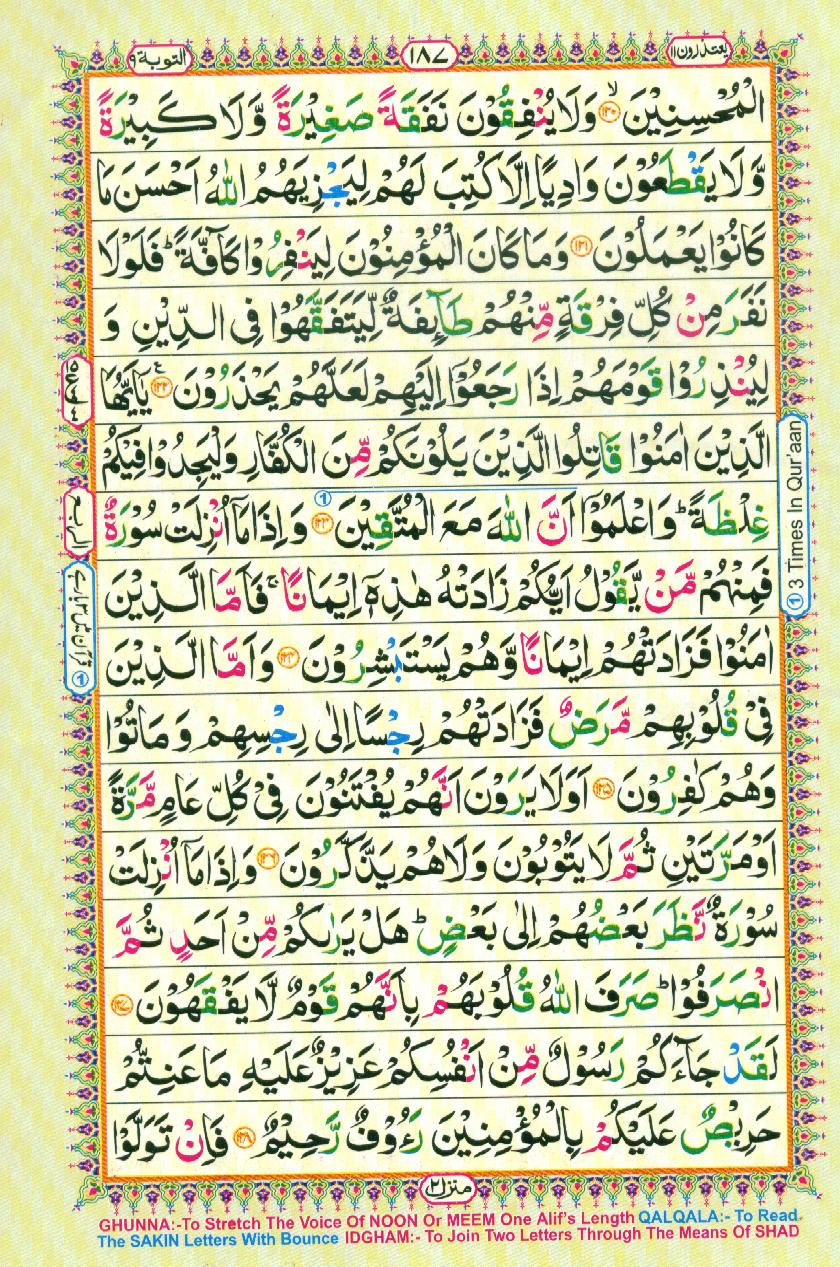 التوبة ٩
١٨٧
يعتذرون ١١
الْمُحْسِنِيْنَ ۙ﴿۱۲۰﴾ وَلَا يُنْفِقُوْنَ نَفَقَةً صَغِيْرَةً وَّلَا كَبِيْرَةً
وَّلَا يَقْطَعُوْنَ وَادِيًا اِلَّا كُتِبَ لَهُمْ لِيَجْزِيَهُمُ اللّٰهُ اَحْسَنَ مَا
كَانُوْا يَعْمَلُوْنَ ﴿۱۲۱﴾ وَمَا كَانَ الْمُؤْمِنُوْنَ لِيَنْفِرُوْا كَآفَّةً ؕ فَلَوْلَا
نَفَرَ مِنْ كُلِّ فِرْقَةٍ مِّنْهُمْ طَآئِفَةٌ لِّيَتَفَقَّهُوْا فِى الدِّيْنِ وَ
لِيُنْذِرُوْا قَوْمَهُمْ اِذَا رَجَعُوْۤا اِلَيْهِمْ لَعَلَّهُمْ يَحْذَرُوْنَ ﴿۱۲۲﴾ يٰۤاَيُّهَا
الَّذِيْنَ اٰمَنُوْا قَاتِلُوا الَّذِيْنَ يَلُوْنَكُمْ مِّنَ الْكُفَّارِ وَلْيَجِدُوْا فِيْكُمْ
غِلْظَةً ؕ وَاعْلَمُوْۤا اَنَّ اللّٰهَ مَعَ الْمُتَّقِيْنَ ﴿۱۲۳﴾ وَاِذَا مَاۤ اُنْزِلَتْ سُوْرَةٌ
فَمِنْهُمْ مَّنْ يَّقُوْلُ اَيُّكُمْ زَادَتْهُ هٰذِهٖۤ اِيْمَانًا ۚ فَاَمَّا الَّذِيْنَ
اٰمَنُوْا فَزَادَتْهُمْ اِيْمَانًا وَّهُمْ يَسْتَبْشِرُوْنَ ﴿۱۲۴﴾ وَاَمَّا الَّذِيْنَ
فِىْ قُلُوْبِهِمْ مَّرَضٌ فَزَادَتْهُمْ رِجْسًا اِلٰى رِجْسِهِمْ وَ مَاتُوْا
وَهُمْ كٰفِرُوْنَ ﴿۱۲۵﴾ اَوَلَا يَرَوْنَ اَنَّهُمْ يُفْتَنُوْنَ فِىْ كُلِّ عَامٍ مَّرَّةً
اَوْ مَرَّتَيْنِ ثُمَّ لَا يَتُوْبُوْنَ وَلَا هُمْ يَذَّكَّرُوْنَ ﴿۱۲۶﴾ وَاِذَا مَاۤ اُنْزِلَتْ
سُوْرَةٌ نَّظَرَ بَعْضُهُمْ اِلٰى بَعْضٍ ؕ هَلْ يَرٰىكُمْ مِّنْ اَحَدٍ ثُمَّ
انْصَرَفُوْا ؕ صَرَفَ اللّٰهُ قُلُوْبَهُمْ بِاَنَّهُمْ قَوْمٌ لَّا يَفْقَهُوْنَ ﴿۱۲۷﴾
لَقَدْ جَآءَكُمْ رَسُوْلٌ مِّنْ اَنْفُسِكُمْ عَزِيْزٌ عَلَيْهِ مَا عَنِتُّمْ
حَرِيْصٌ عَلَيْكُمْ بِالْمُؤْمِنِيْنَ رَءُوْفٌ رَّحِيْمٌ ﴿۱۲۸﴾ فَاِنْ تَوَلَّوْا
الربع
① قرآن میں ۳ بار ہے
① 3 Times In Qur'aan
منزل ٢
GHUNNA:-To Stretch The Voice Of NOON Or MEEM One Alif's Length QALQALA:- To Read
The SAKIN Letters With Bounce IDGHAM:- To Join Two Letters Through The Means Of SHAD